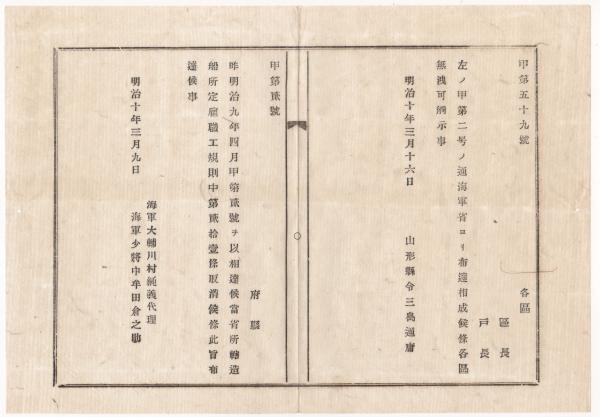 甲第五十九號
各區
區長
戸長
左ノ甲第二号ノ通海軍省ヨリ布達相成候條各區
無洩可觸示事
明治十年三月十六日
山形縣令三島通庸
甲第貳號
府縣
昨明治九年四月甲第貳號ヲ以相達候當省所轄造
船所定雇職工規則中第貳拾壹條取消候條此旨布
達候事
明治十年三月九日
海軍大輔川村純義代理
海軍少將中牟田倉之助